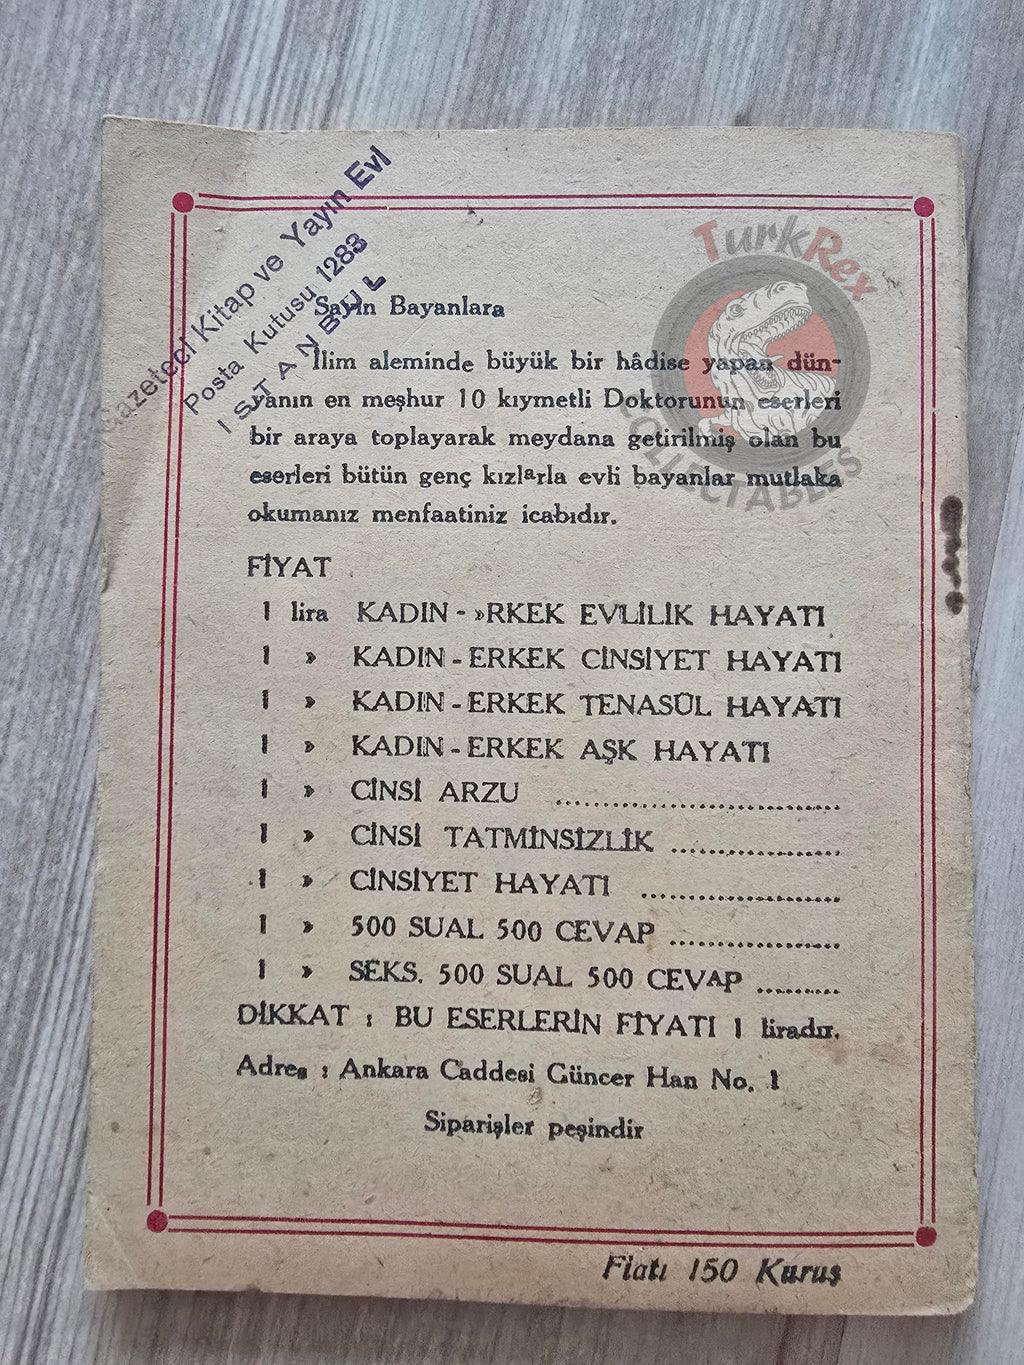 Gazeteci Kitap ve Yayın Evi
Posta Kutusu 1283
ISTANBUL
TurkRex
COLLECTABLES
Sayın Bayanlara
İlim aleminde büyük bir hâdise yapan dün-
yanın en meşhur 10 kıymetli Doktorunun eserleri
bir araya toplayarak meydana getirilmiş olan bu
eserleri bütün genç kızlarla evli bayanlar mutlaka
okumanız menfaatiniz icabıdır.
FİYAT
1 lira KADIN - »RKEK EVLİLİK HAYATI
1 » KADIN - ERKEK CİNSİYET HAYATI
1 » KADIN - ERKEK TENASÜL HAYATI
1 » KADIN - ERKEK AŞK HAYATI
1 » CİNSİ ARZU ..............................
1 » CİNSİ TATMİNSİZLİK ..................
1 » CİNSİYET HAYATI .....................
1 » 500 SUAL 500 CEVAP ..................
1 » SEKS. 500 SUAL 500 CEVAP .........
DİKKAT : BU ESERLERİN FİYATI 1 liradır.
Adres : Ankara Caddesi Güncer Han No. 1
Siparişler peşindir
Fiatı 150 Kuruş